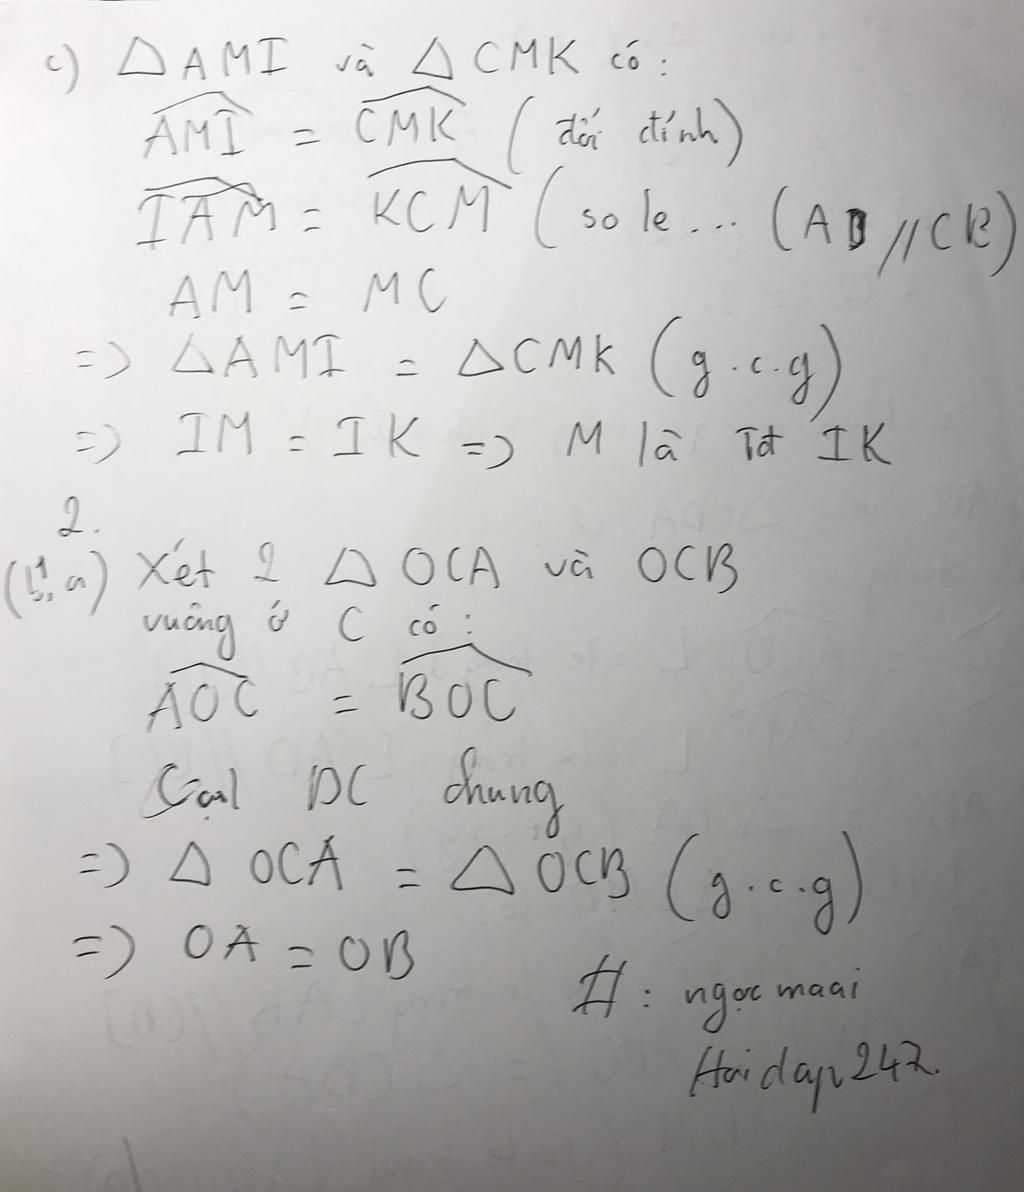 c) △AMI và △CMK có:
AMI = CMK (đối đỉnh)
IAM = KCM (so le ... (AB//CK)
AM = MC
=> △AMI = △CMK (g.c.g)
=> IM = IK => M là Tđ IK
2.
a) Xét 2 △ OCA và OCB
vuông ở C có:
AOC = BOC
chung
=> △ OCA = △ OCB (g.c.g)
=> OA = OB
#: ngọc maai
Hoidap247.